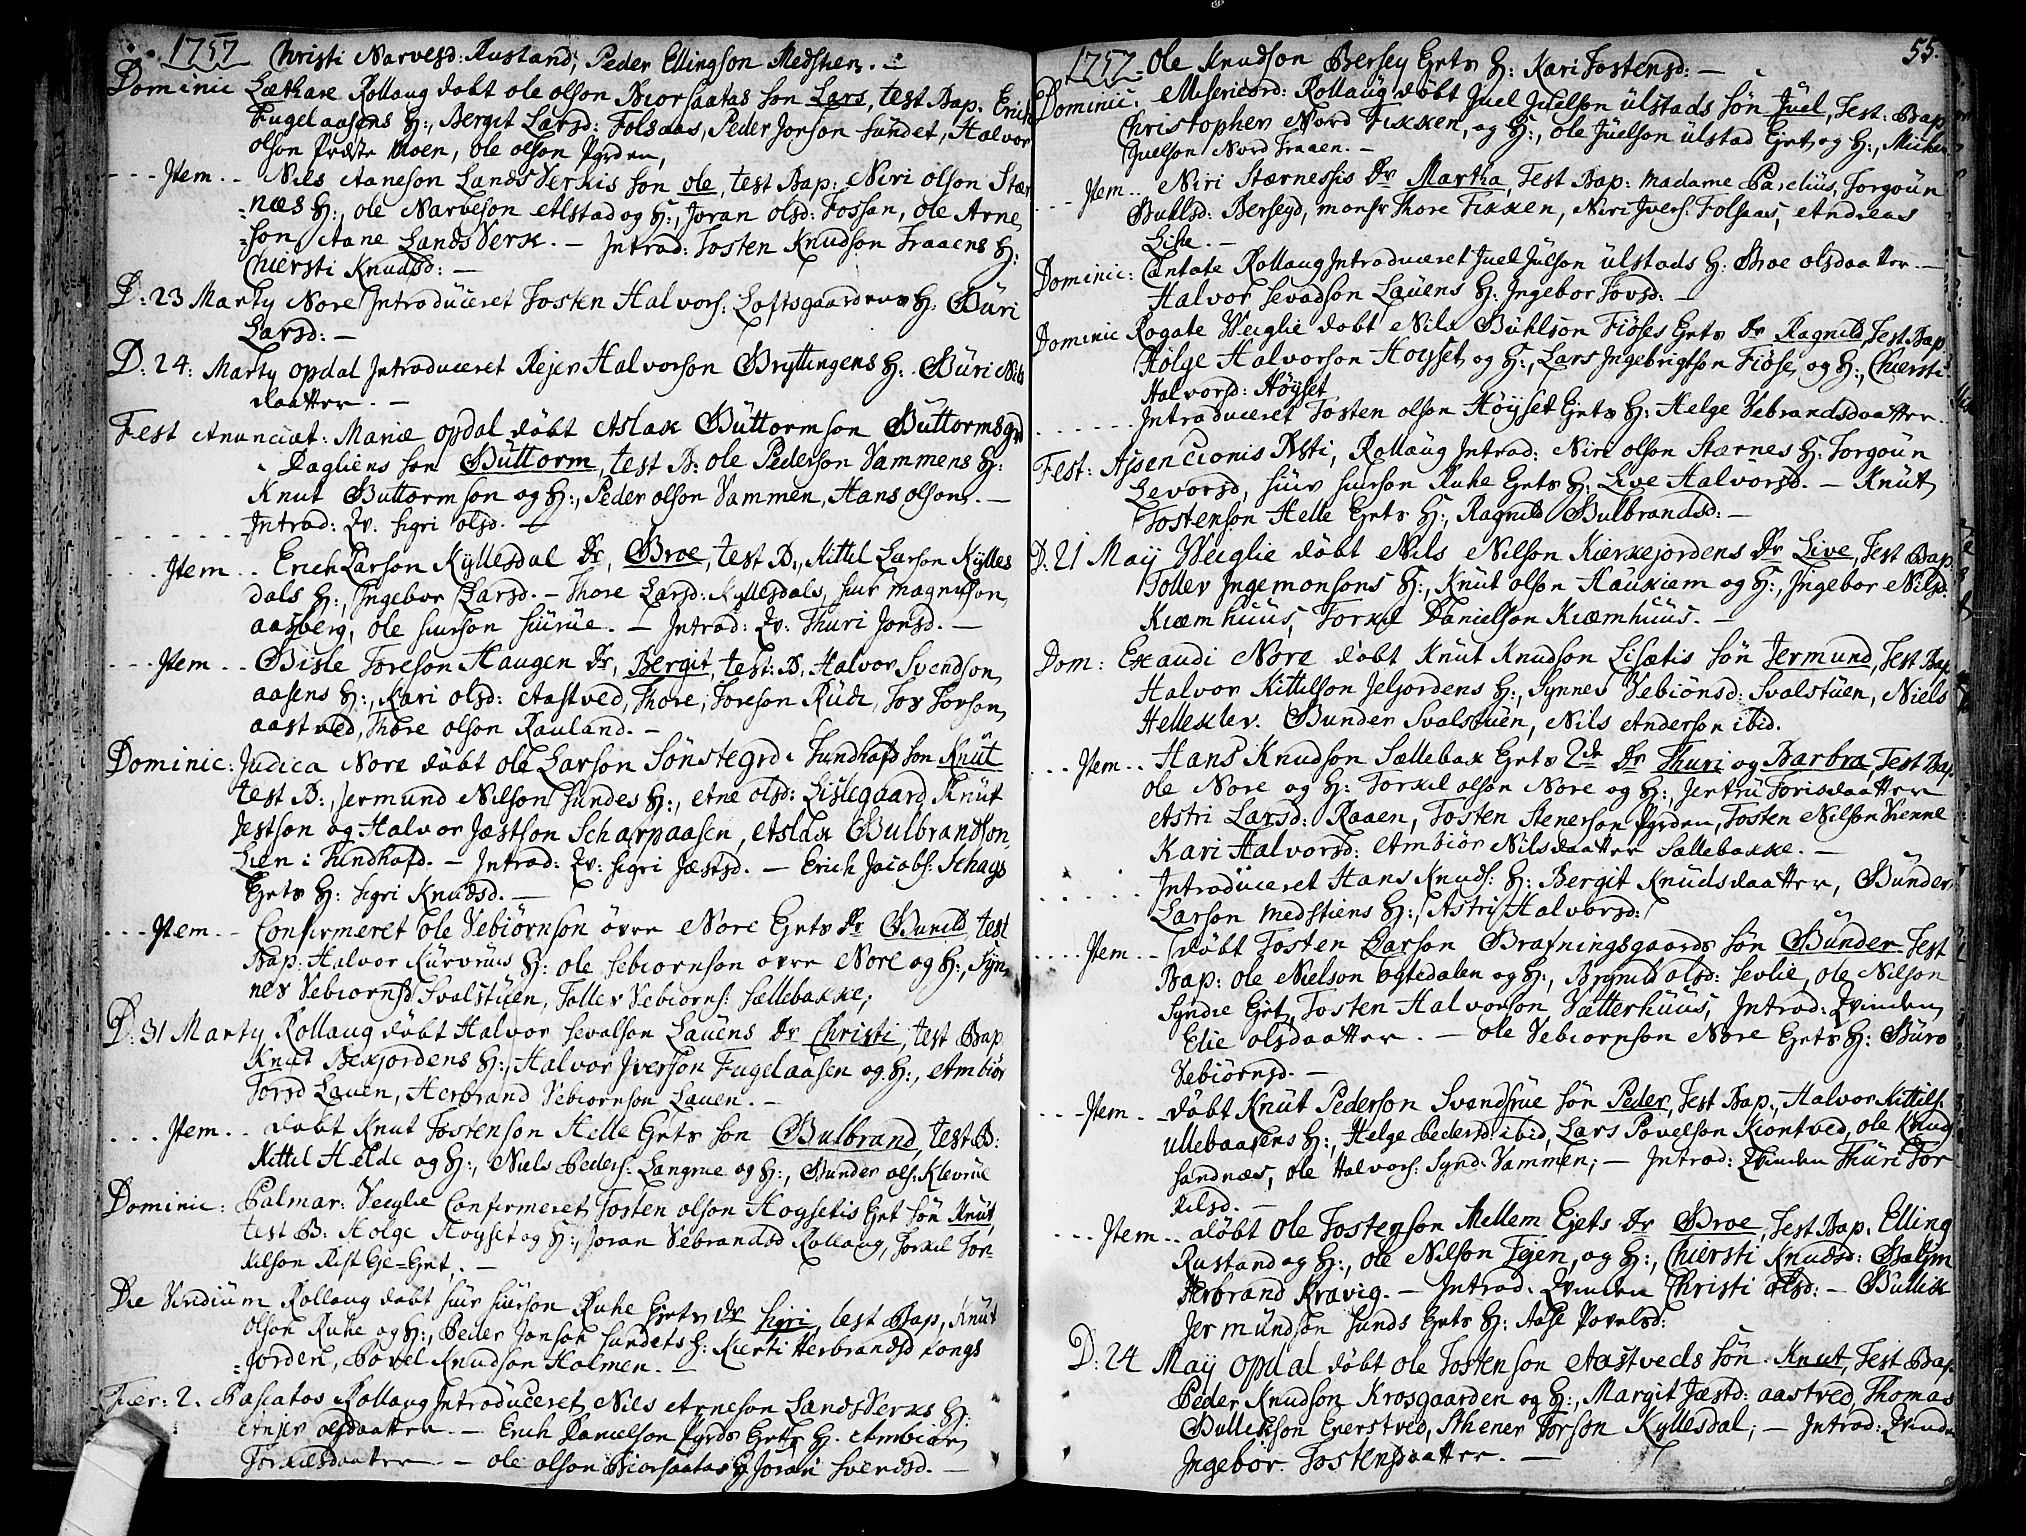 1757 Christi Narvesd: Rustand, Peder Ellingson Medstien. -
Dominic Læthare Rollaug døbt ole olson Biorsaatas søn Lars, test Bap. Erich
Fugelaasens H:, Bergit Larsd: Folsaas, Peder Jorson sundet, Halvor
olson Præste Moen, ole olson Pgrden,
- - - Jtem - - Nils Aaneson LandsVerkis søn ole, test Bap: Niri olson Stær
næs H:, ole Narveson Alstad og H:, Joran olsd: Fossan, ole Arne
son Aane LandsVerk. - Introd: Tosten Knudson Fraaens H:
Chiersti Knudsd: -
D: 23 Marty Nore Introduceret Tosten Halvors: Loftsgaardens H: Guri
Larsd: -
D: 24: Marty opdal Introduceret Rejer Halvorson Bryttingens H: Guri Nils
daatter. -
Fest Anunciat: Mariæ opdal døbt Aslak Guttormson Guttormsgrd
i Dagliens søn Guttorm, test B: ole Pederson Vammens H:
Knut Guttormson og H:, Peder olson Vammen, Hans olson. -
- - - - - - Introd: Qv: sigri olsd. -
- - - Jtem - - Erich Larson Kyllesdal Dr, Groe, test B., Kittil Larson Kylles
dals H:, Ingebor Larsd. - Thore Larsd: Kyllesdals, siur magnuson
aasberg, ole siurson siurue. - Introd: Qv: Thuri Jonsd. -
- - - Jtem - - Gisle Toreson Haugen Dr, Bergit, test: B. Halvor Svendson
aasens H:, Kari olsd: Aastved, Thore, Toreson Rude, Tor Torson
aastved, Thore olson Rauland. -
Dominic: Judica Nore døbt ole Larson Sønstegrd i Tundhofd søn Knut
test B:, Jermund Nilson sundes H:, Ane olsd: Lislegaard, Knut
Jestson og Halvor Jæstson Scharpaasen, Aslak Gulbrandson
Lien i Tundhofd. - Introd: Qv: sigri Jæstsd. - Erich Jacobs: Schags
Eyets H: sigri Knudsd. -
- - - Jtem - Confirmeret ole Vebiørnson øvre Nore Eyets Dr Gunild, test
Bap: Halvor Kurvruus H: ole sebiornson ovre Nore og H:, Syn
nev Vebiornsd Svalstuen, Tollev Vebiorns: sællebakke,
D: 31 Marty Rollaug døbt Halvor sevalson Lauens Dr Christi, test Bap
Knut Bekjordens H:, Halvor Jverson Fugelaasen og H:, Ambiør
Torsd Lauen, Herbrand Vebiørnson Lauen. -
- - - Jtem - - døbt Knut Tostenson Helle Eyets søn Gulbrand, test B:
Kittil Helde og H:, Niels Peders: Langrue og H:, Gunder ols: Klevrue
Dominic: Palmar: Veiglie Confirmeret Tosten olson Hoysetis Eyet søn Knut,
test B: Holge Hoyset og H:, Joran Vebrandsd Rollaug, Torkil Tor
kilson Rist Eje=Eyet. -
Die Viridium Rollaug døbt siur siurson Ruhe Eyets Dr sigri, test Bap, Knut
olson Ruhe og H:, Peder Jonson sundets H: Kiersti Herbrandsd Kongs
Jorden, Povel Knudson Holmen. -
Fær: 2. Pascatos Rollaug Introduceret Nils Arneson LandsVerks H:
Anjer olsdaatter. - Erich Danielson Pgrds Eyets H. Ambiør
Torkildsdaatter - ole olson Biorsaatas H Joran svendsd. -
1757. Ole Knudson Bersey Eyets H: Kari Tostensd: - 55.
Dominic: Misericord: Rollaug døbt Juel Juelson ulstads søn Juel, Test: Bap
Christopher Nord Fikken, og H:, ole Juelson ulstad Eyet og H:, Michel
Juelson Nord Fraaen. -
- - - Jtem - - Niri Stærnessis Dr Martha, Test Bap: Madame Parelius, Torgoun
Guhlsd: Berseyd, monsr Thore Fikken, Niri Jvers: Folsaas, Andreas
Lihe. -
Dominic: Cantate Rollaug Introduceret Juel Julson ulstads H: Groe olsdaatter. -
Halvor sevadson Lauens H: Ingebor Tovsd: -
Dominic Rogate Weiglie døbt Nils Guhlson Fiøses Eyets Dr Ragnild, Test Bap
Holge Halvorson Hoyset og H:, Lars Ingebrigtson Fiøse og H:, Chiersti
Halvorsd: Høyset
- - - - - - Introduceret Tosten olson Høyset Eyets H: Helge Vebrandsdaatter.
Fest: Assencionis Xsti, Rollaug Introd: Niri olson Stærnes H: Torgoun
Levorsd, siur siurson Ruhe Eyets H: Live Halvorsd. - Knut
Tostenson Helle Eyets H:, Ragnild Gulbrandsd: -
D: 21 May Weiglie døbt Nils Nilson Kirkejordens Dr Live, Test Bap
Tollev Ingemonsons H:, Knut olson Haukiem og H:, Ingebor Nilsd.
Kiæmhuus, Torkil Danielson Kiæmhuus. -
Dom: Exaudi Nore døbt Knut Knudson Lisætis søn Jermund, Test Bap.
Halvor Kittilson Jeljordens H:, Synnev Vebiønsd: Svalstuen, Niels
Helleklev. Gunder Svalstuen, Nils Anderson ibid.
- - - Jtem - - Hans Knudson Sællebak Eyets 2de Dr Thuri og Barbra, Test Bap
ole Nore og H: Torkil olson Nore og H:, Jertru Torisdaatter
Astri Larsd: Raaen, Tosten Stenerson Pgrden, Tosten Nilson Kienne
Kari Halvorsd: Ambiør Nilsdaatter Sællebakke. -
- - - - - - Introduceret Hans Knuds: H: Bergit Knudsdaatter, Gunder
Larson medstiens H:, Astri Halvorsd:
- - - Jtem - - døbt Tosten Larson Brafningsgaards søn Gunder Test
Bap: ole Nielson ogtedalen og H:, Brynild olsd: sevlie, ole Nilson
Syndre Eyet, Tosten Halvorson Vætterhuus, Introd: Qvinden
Elie olsdaatter. - ole Vebiornson Nore Eyets H: Guro
Vebiørnsd. -
- - - Jtem - døbt Knut Pederson Svendsrue søn Peder, Test Bap., Halvor Kittils:
ullebaasens H:, Helge Pedersd: ibid, Lars Povelson Kiontved, ole Knuds
sandnæs, ole Halvors: Synd: Vammen; - Introd: Qvinden Thuri Tor
kilsd. -
- - - Jtem - - døbt Ole Tostenson Mellem Eyets Dr Groe, Test Bap. Elling
Rustand og H:, ole Nilson Tejen, og H:, Chiersti Knudsd:
Herbrand Kravig. - Introd: Qvinden Christi olsd: - Gullik
Jermundson sunds Eyets H: Aase Povelsd:
D: 24 May opdal døbt ole Tostenson Aastveds søn. Knut, Test Bap.
Peder Knudson Krosgaarden og H:, Margit Jæstd: aastved, Thomas
Gullikson Enerstved, Sthener Torson Kyllesdal; - Introd: Qvinden
Ingebor Tostensdaatter. -